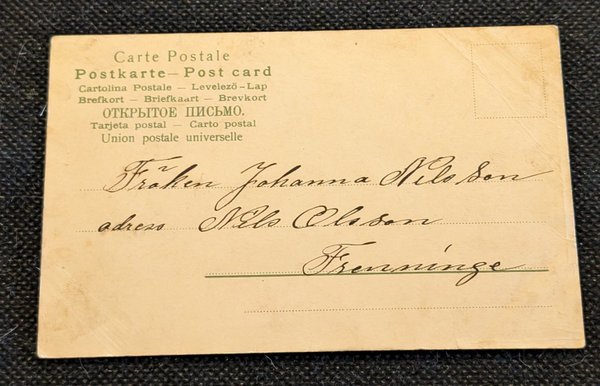 Carte Postale
Postkarte — Post card
Cartolina Postale — Levelező-Lap
Brefkort — Briefkaart — Brevkort
ОТКРЫТОЕ ПИСЬМО.
Tarjeta postal — Carto postal
Union postale universelle
Fröken Johanna Nilsson
adress Nils Olsson
Frenninge